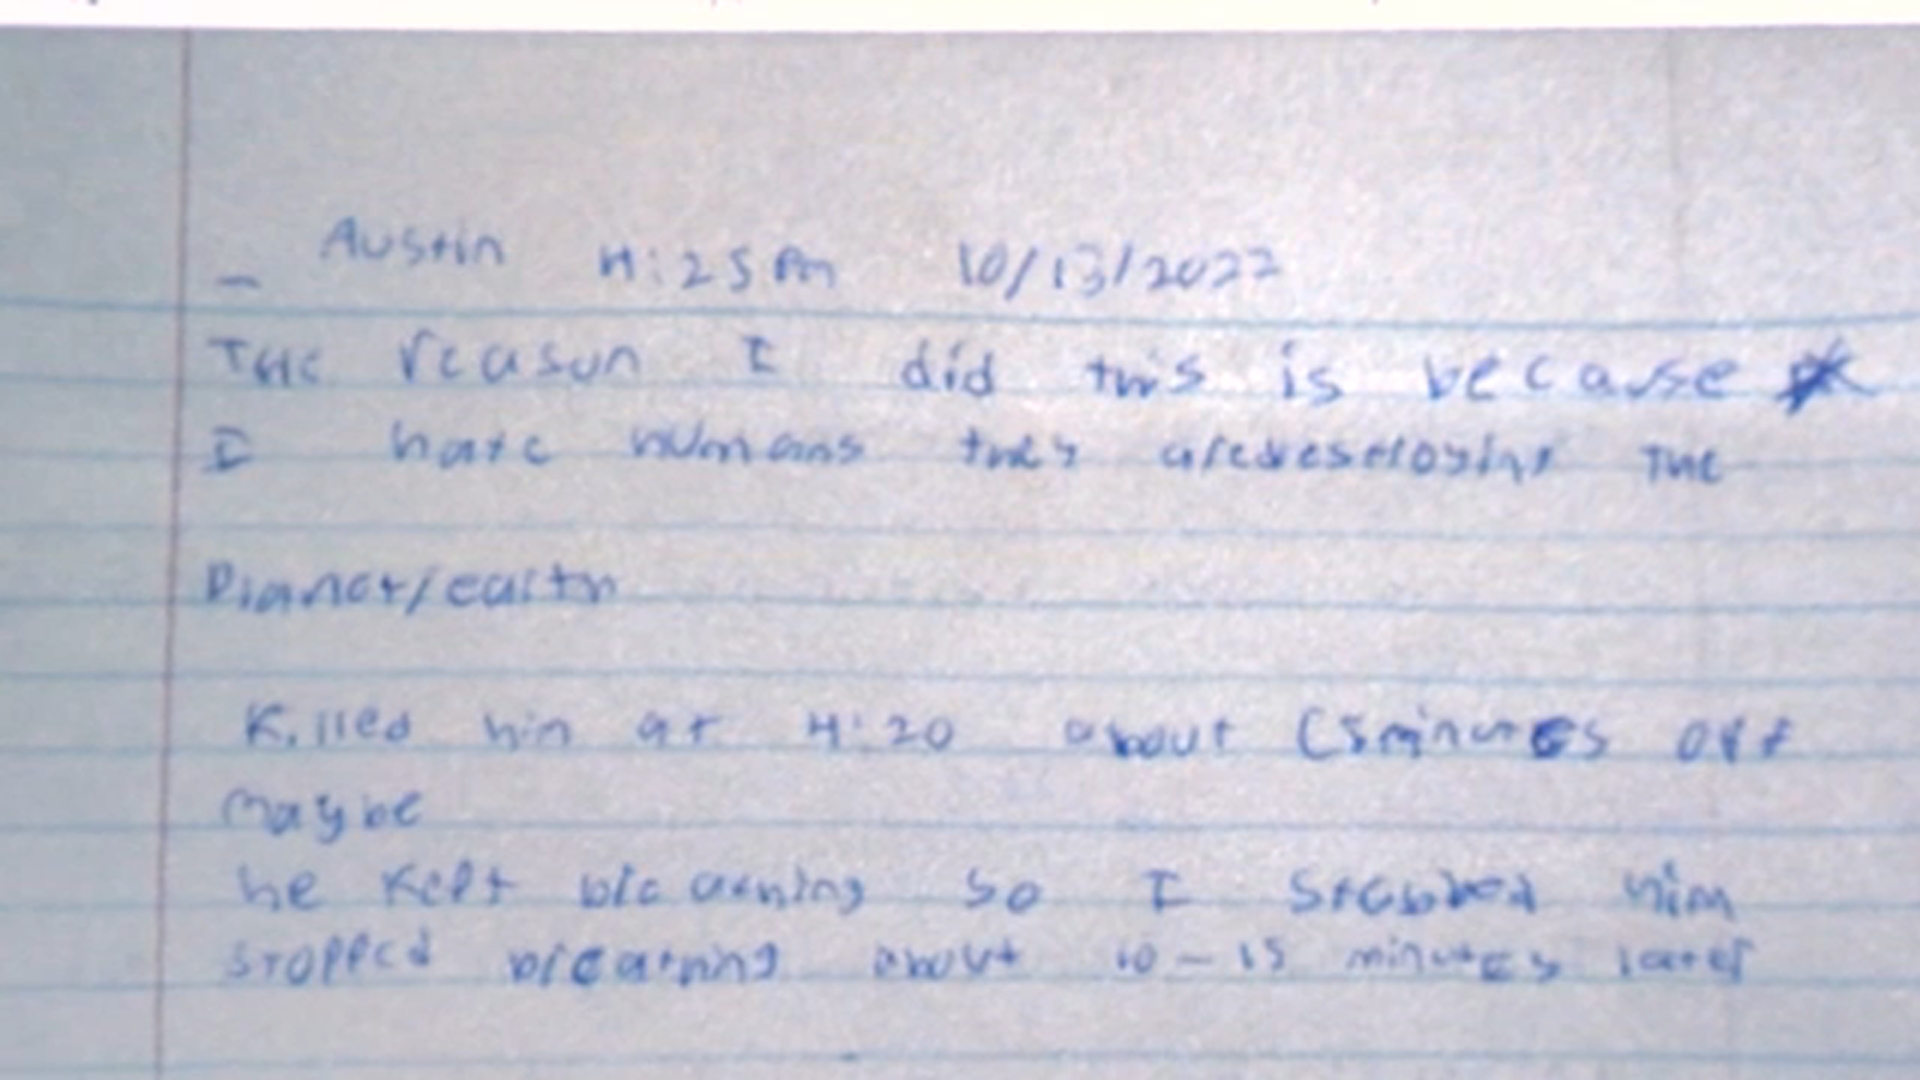 Austin 4:25 Pm 10/13/2022
THE reason I did this is because
I hate humans they aredestroying THE
Planet/earth
Killed him at 4:20 about (5minutes off
maybe
he Kept breathing so I Stabbed him
STOPPed breathing about 10-15 minutes later